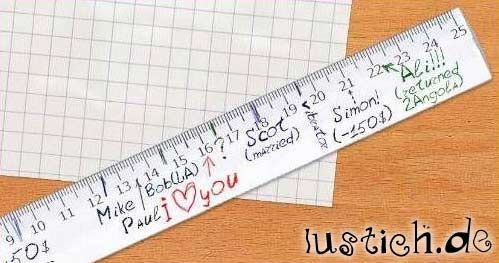 9 10 11 12 13 14 15 16 17 18 19 20 21 22 23 24 25
-150$
Mike
Paul
Bob(LA)
I ♥ you
?
Scot
(married)
Simon!
(-150$)
Ali!!!
(returned
2Angola)
lustich.de